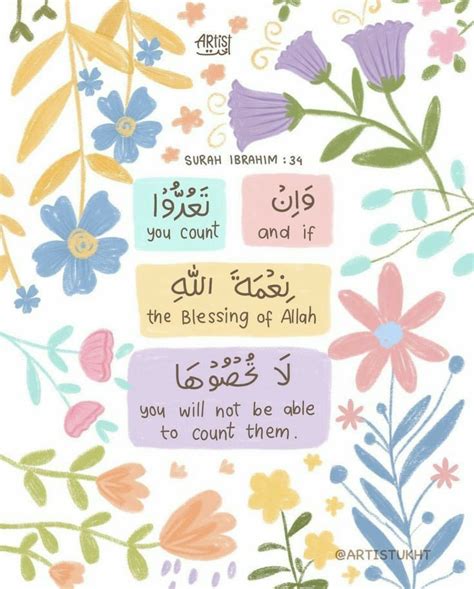 ARtist
أخت
SURAH IBRAHIM : 34
وَاِنۡ تَعُدُّوۡا
and if you count
نِعۡمَةَ اللّٰهِ
the Blessing of Allah
لَا تُحۡصُوۡهَا
you will not be able
to count them.
@ARTISTUKHT